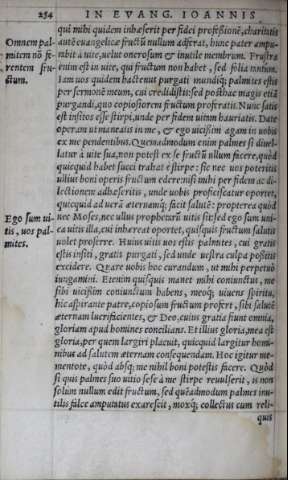 254 IN EVANG. IOANNIS
qui mihi quidem inhæserit per fidei professionē, charitatis
Omnem palmitem nō ferentem fructum.
autē euangelicæ fructū nullum adferat, hunc pater amputabit
à uite, uelut onerosum & inutile membrum. Frustra
enim est in uite, qui fructum non habet, sed folia tantum.
Iam uos quidem hactenus purgati mundiq; palmites estis
per sermonē meum, cui credidistis: sed posthac magis etiā
purgandi, quo copiosiorem fructum proferatis. Nunc satis
est insitos esse stirpi, unde per fidem uitam hauriatis. Date
operam ut maneatis in me, & ego uicissim agam in uobis
ex me pendentibus. Quemadmodum enim palmes si diuellatur
à uite sua, non potest ex se fructū ullum facere, quòd
quicquid habet succi trahat è stirpe: sic nec uos poteritis
ullius boni operis fructum edere, nisi mihi per fidem ac dilectionem
adhæseritis, unde uobis proficiscatur oportet,
quicquid ad uerā æternamq; facit salutē: propterea quòd
Ego sum uitis, uos palmites.
nec Moses, nec ullus prophetarū uitis sit: sed ego sum unica
uitis illa, cui inhæreat oportet, quisquis fructum salutis
uolet proferre. Huius uitis uos estis palmites, cui gratis
estis insiti, gratis purgati, sed unde uestra culpa potestis
excidere. Quare uobis hoc curandum, ut mihi perpetuò
iungamini. Etenim quisquis manet mihi coniunctus, me
sibi uicissim coniunctum habens, meoq; uiuens spiritu,
hic aspirante patre, copiosum fructum profert, sibi salutē
æternam lucrificientes, & Deo, cuius gratia fiunt omnia,
gloriam apud homines concilians. Et illius gloria, mea est
gloria, per quem largiri placuit, quicquid largitur hominibus
ad salutem æternam consequendam. Hoc igitur mementote,
quòd absq; me nihil boni potestis facere. Quòd
si quis palmes suo uitio sese à me stirpe reuulserit, is non
solùm nullum edit fructum, sed quēadmodum palmes inutilis
falce amputatus exarescit, moxq; collectus cum reliquis